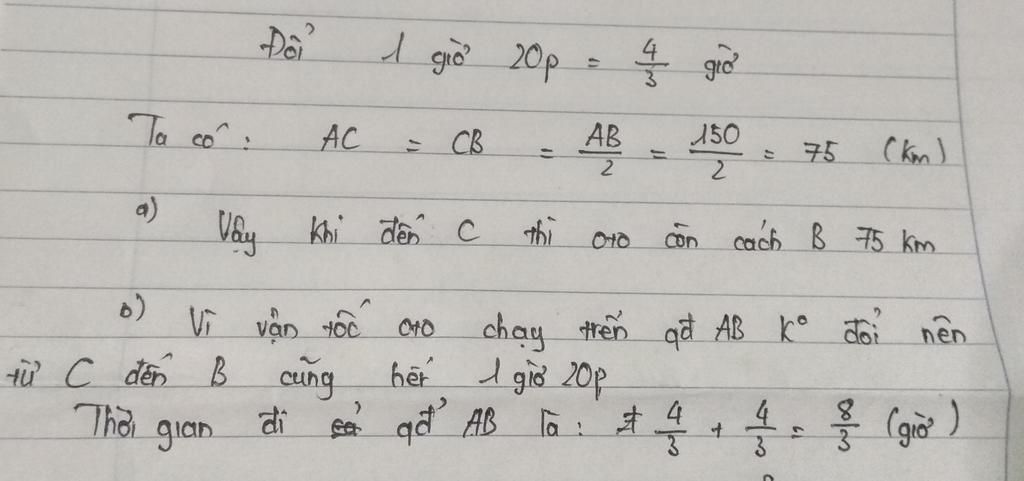 Đổi 1 giờ 20p = 4/3 giờ
Ta có : AC = CB = AB/2 = 150/2 = 75 (km)
a) Vậy khi đến C thì oto còn cách B 75 km
b) Vì vận tốc oto chạy trên qđ AB kº đổi nên
từ C đến B cũng hết 1 giờ 20p
Thời gian đi qđ AB là : 4/3 + 4/3 = 8/3 (giờ)